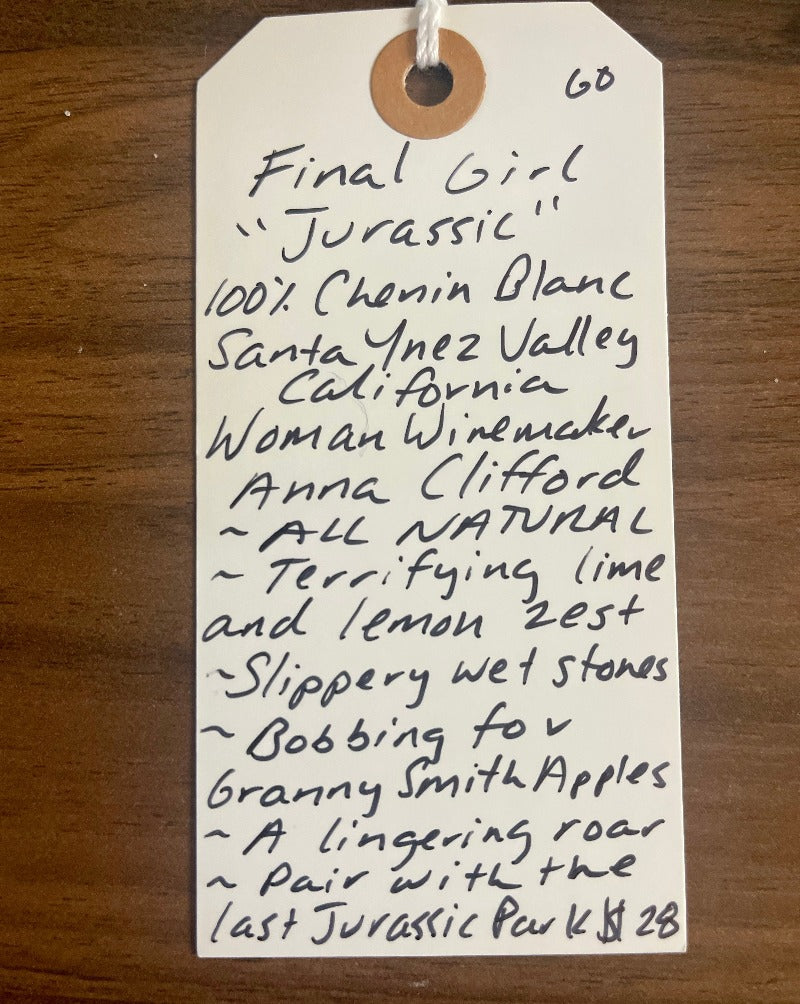 GO
Final Girl
"Jurassic"
100% Chenin Blanc
Santa Ynez Valley
California
Woman Winemaker
Anna Clifford
~ ALL NATURAL
~ Terrifying lime
and lemon zest
~ Slippery wet stones
~ Bobbing for
Granny Smith Apples
~ A lingering roar
~ Pair with the
last Jurassic Park $28